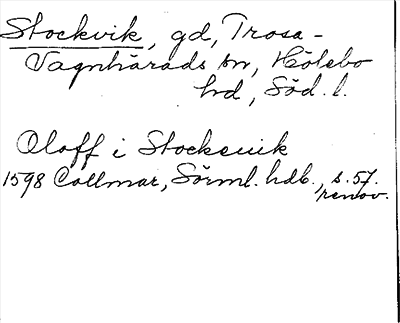 Stockvik, gd, Trosa-
Vagnhärads sn, Hölebo
hd, Söd. l.
Oloff i Stockeuik
1598 Collmar, Sörml. hdb., s. 57.
renov.